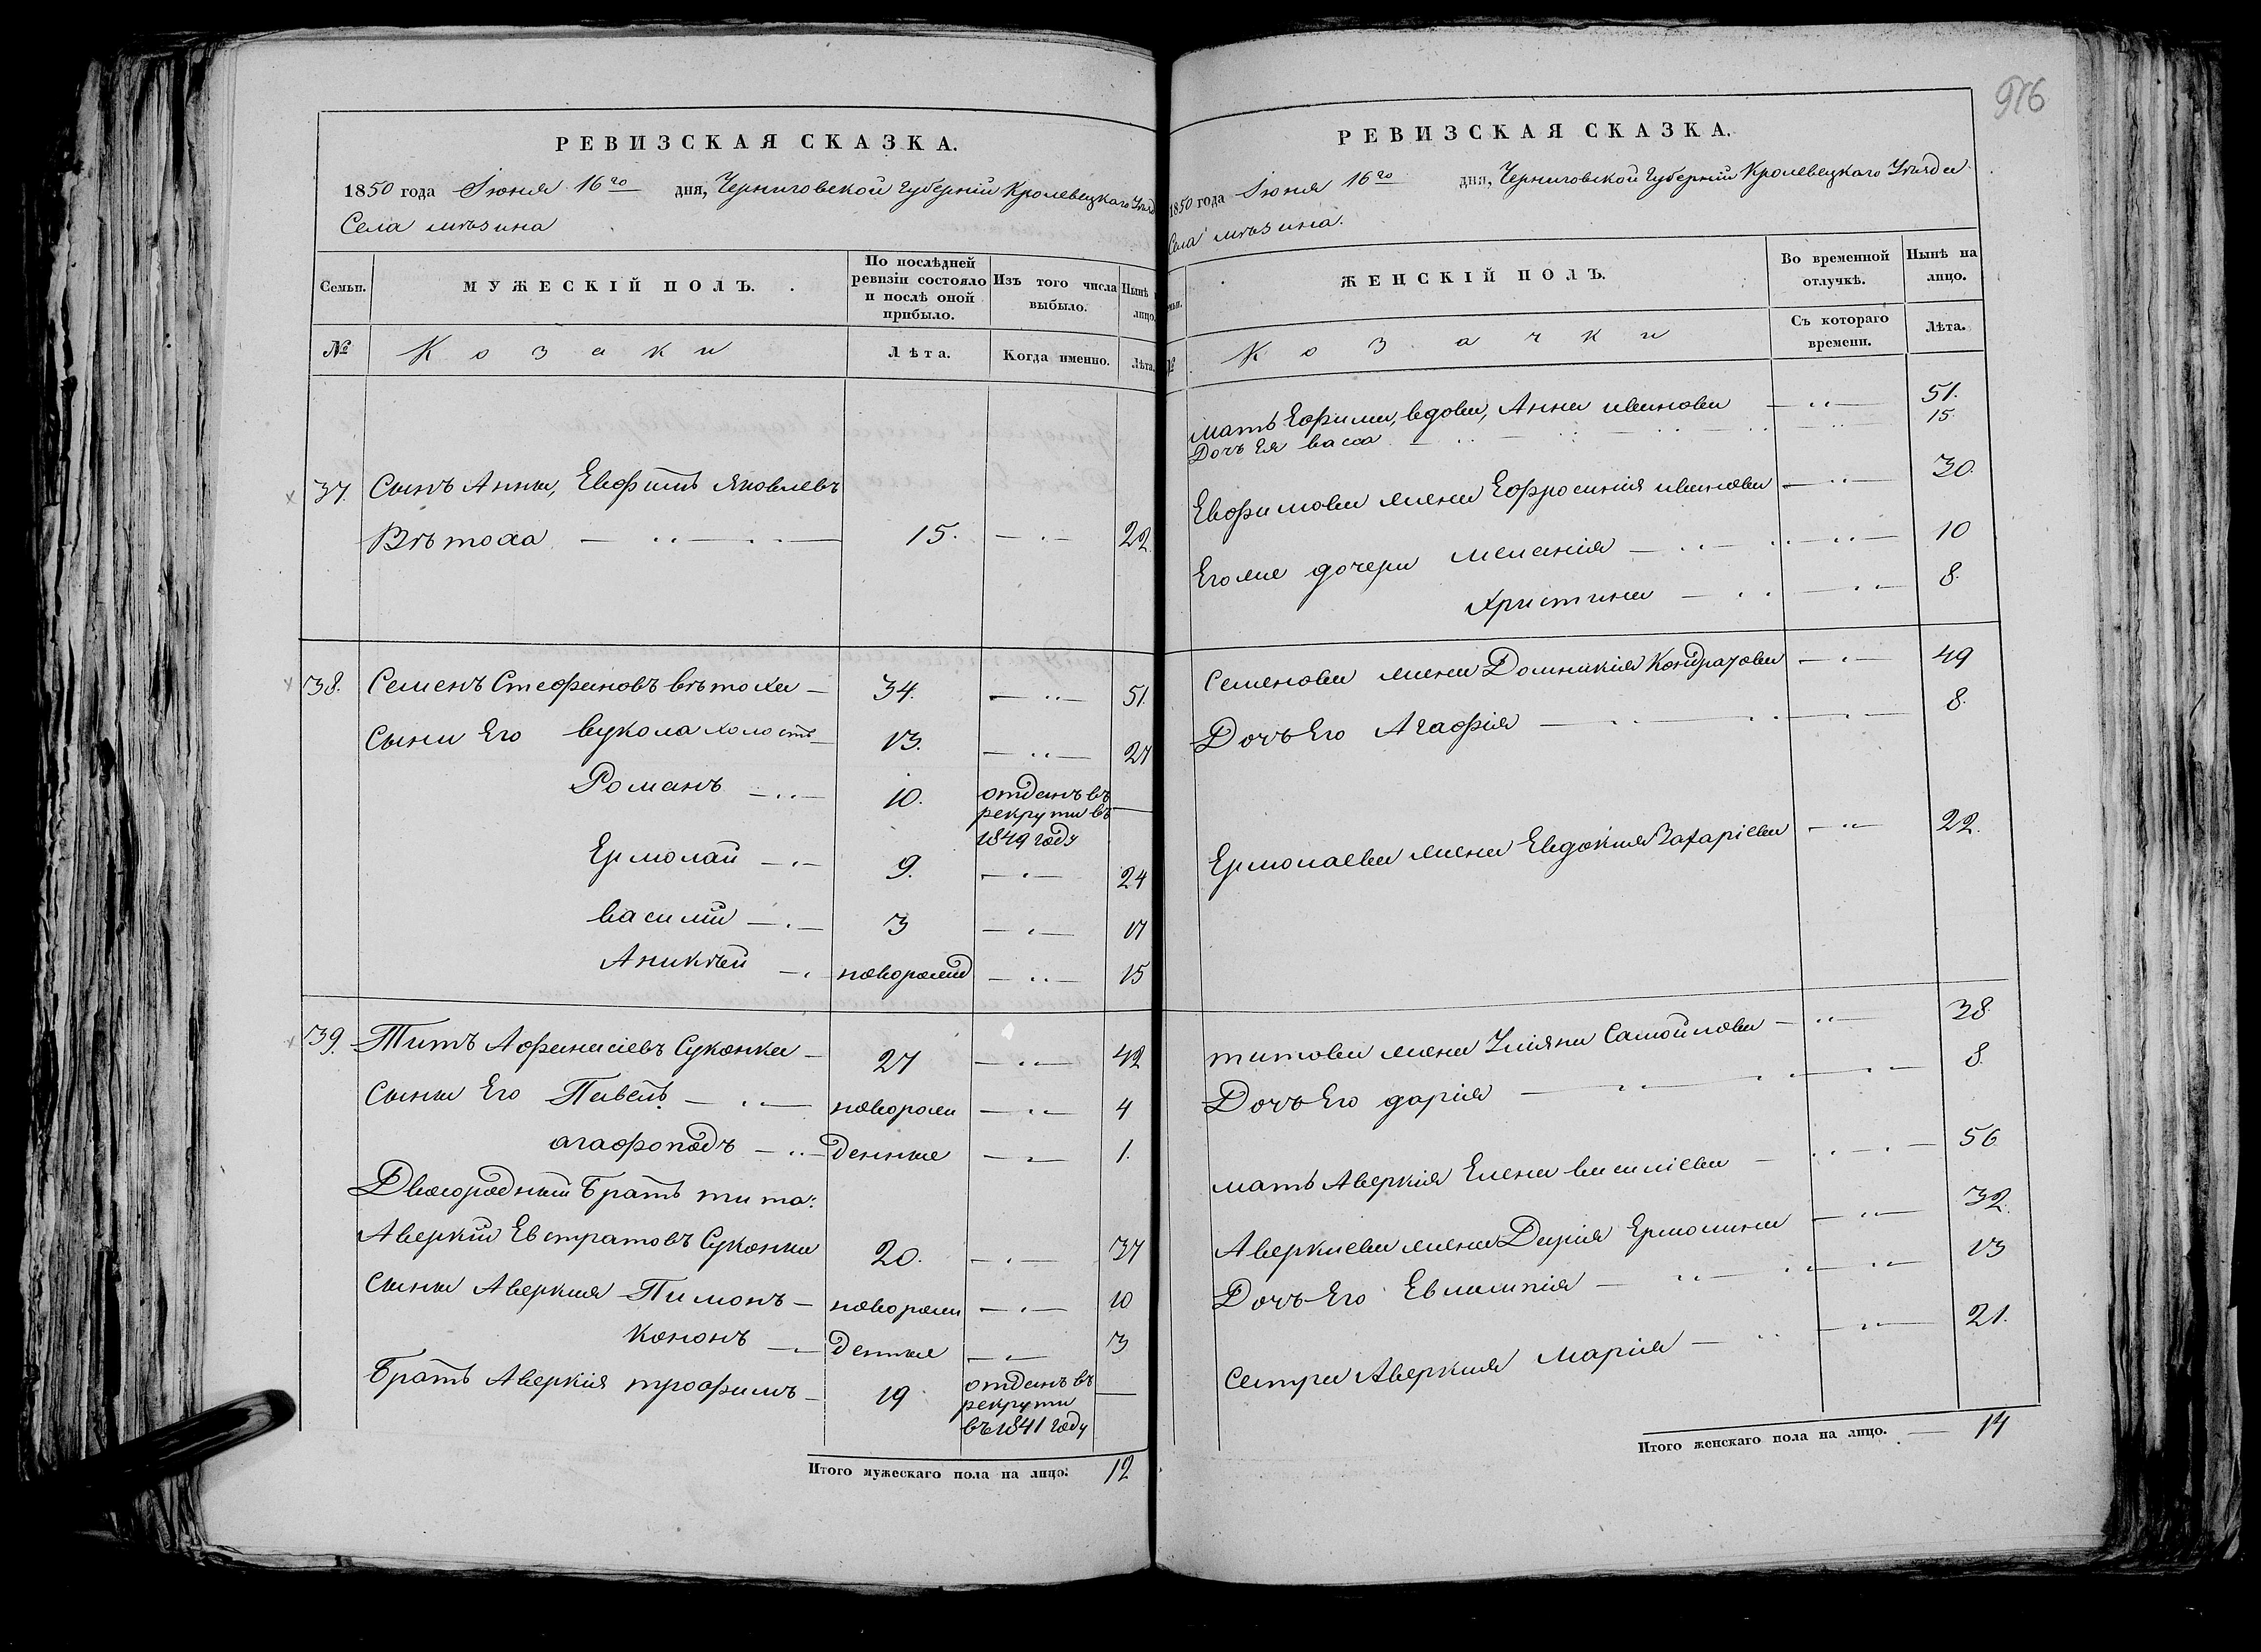 РЕВИЗСКАЯ СКАЗКА.
1850 года Іюня 16го дня, Черниговской Губерніи Кролевецкаго
Села мѣзина
Семьи. МУЖЕСКІЙ ПОЛЪ. По послѣдней ревизіи состояло и послѣ оной прибыло. Изъ того числа выбыло. Нынѣ лицо.
№ Козаки Лѣта. Когда именно. Лѣта.
37. Сынъ Анны, Евфимъ Яковлевъ
Вѣтоха 15. 22
38. Семенъ Стефановъ вѣтоха 34. 51.
Сыны Его вукола холостъ 13. 27
Романъ 10. отданъ въ
рекруты въ
1849 году
Ермолай 9. 24
василій 3 17
Аникѣй новорожд 15
39. Титъ Афанасіевъ Суконка 27 42
Сыны Его Павелъ новорож 4
агафоподъ денные 1.
Двоюродный братъ тита:
Аверкій Евстратовъ Суконка 20. 37
Сыны Аверкія Пимонъ новорож 10
Кононъ денные 3
Братъ Аверкія трофимъ 19 отданъ въ
рекруты
въ 1841 году
Итого мужескаго пола на лицо. 12
976
РЕВИЗСКАЯ СКАЗКА.
1850 года Іюня 16го дня, Черниговской Губерніи Кролевецкаго Уѣзда
Села мѣзина.
ЖЕНСКІЙ ПОЛЪ. Во временной отлучкѣ. Нынѣ на лицо.
№ Козачки Съ котораго времени. Лѣта.
мать Ефима, вдова, Анна иванова 51.
Дочъ Ея васса 15.
Евфимова жена Ефросинія иванова 30.
Его же дочери меланія 10
Христина 8.
Семенова жена Домникія Кондратова 49
Дочъ Его Агафія 8.
Ермолаева жена Евдокія Захаріева 22.
титова жена Уліяна Самойлова 38.
Дочъ Его дарія 8.
мать Аверкія Елена василіева 56
Аверкиева жена Дарія Ермолина 32.
Дочъ Его Евлампія 13
Сестра Аверкія Марія 21.
Итого женскаго пола на лицо. 14